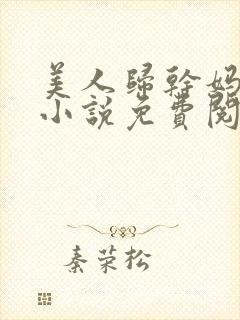 美人歸幹媽
小說免費閱
秦荣松